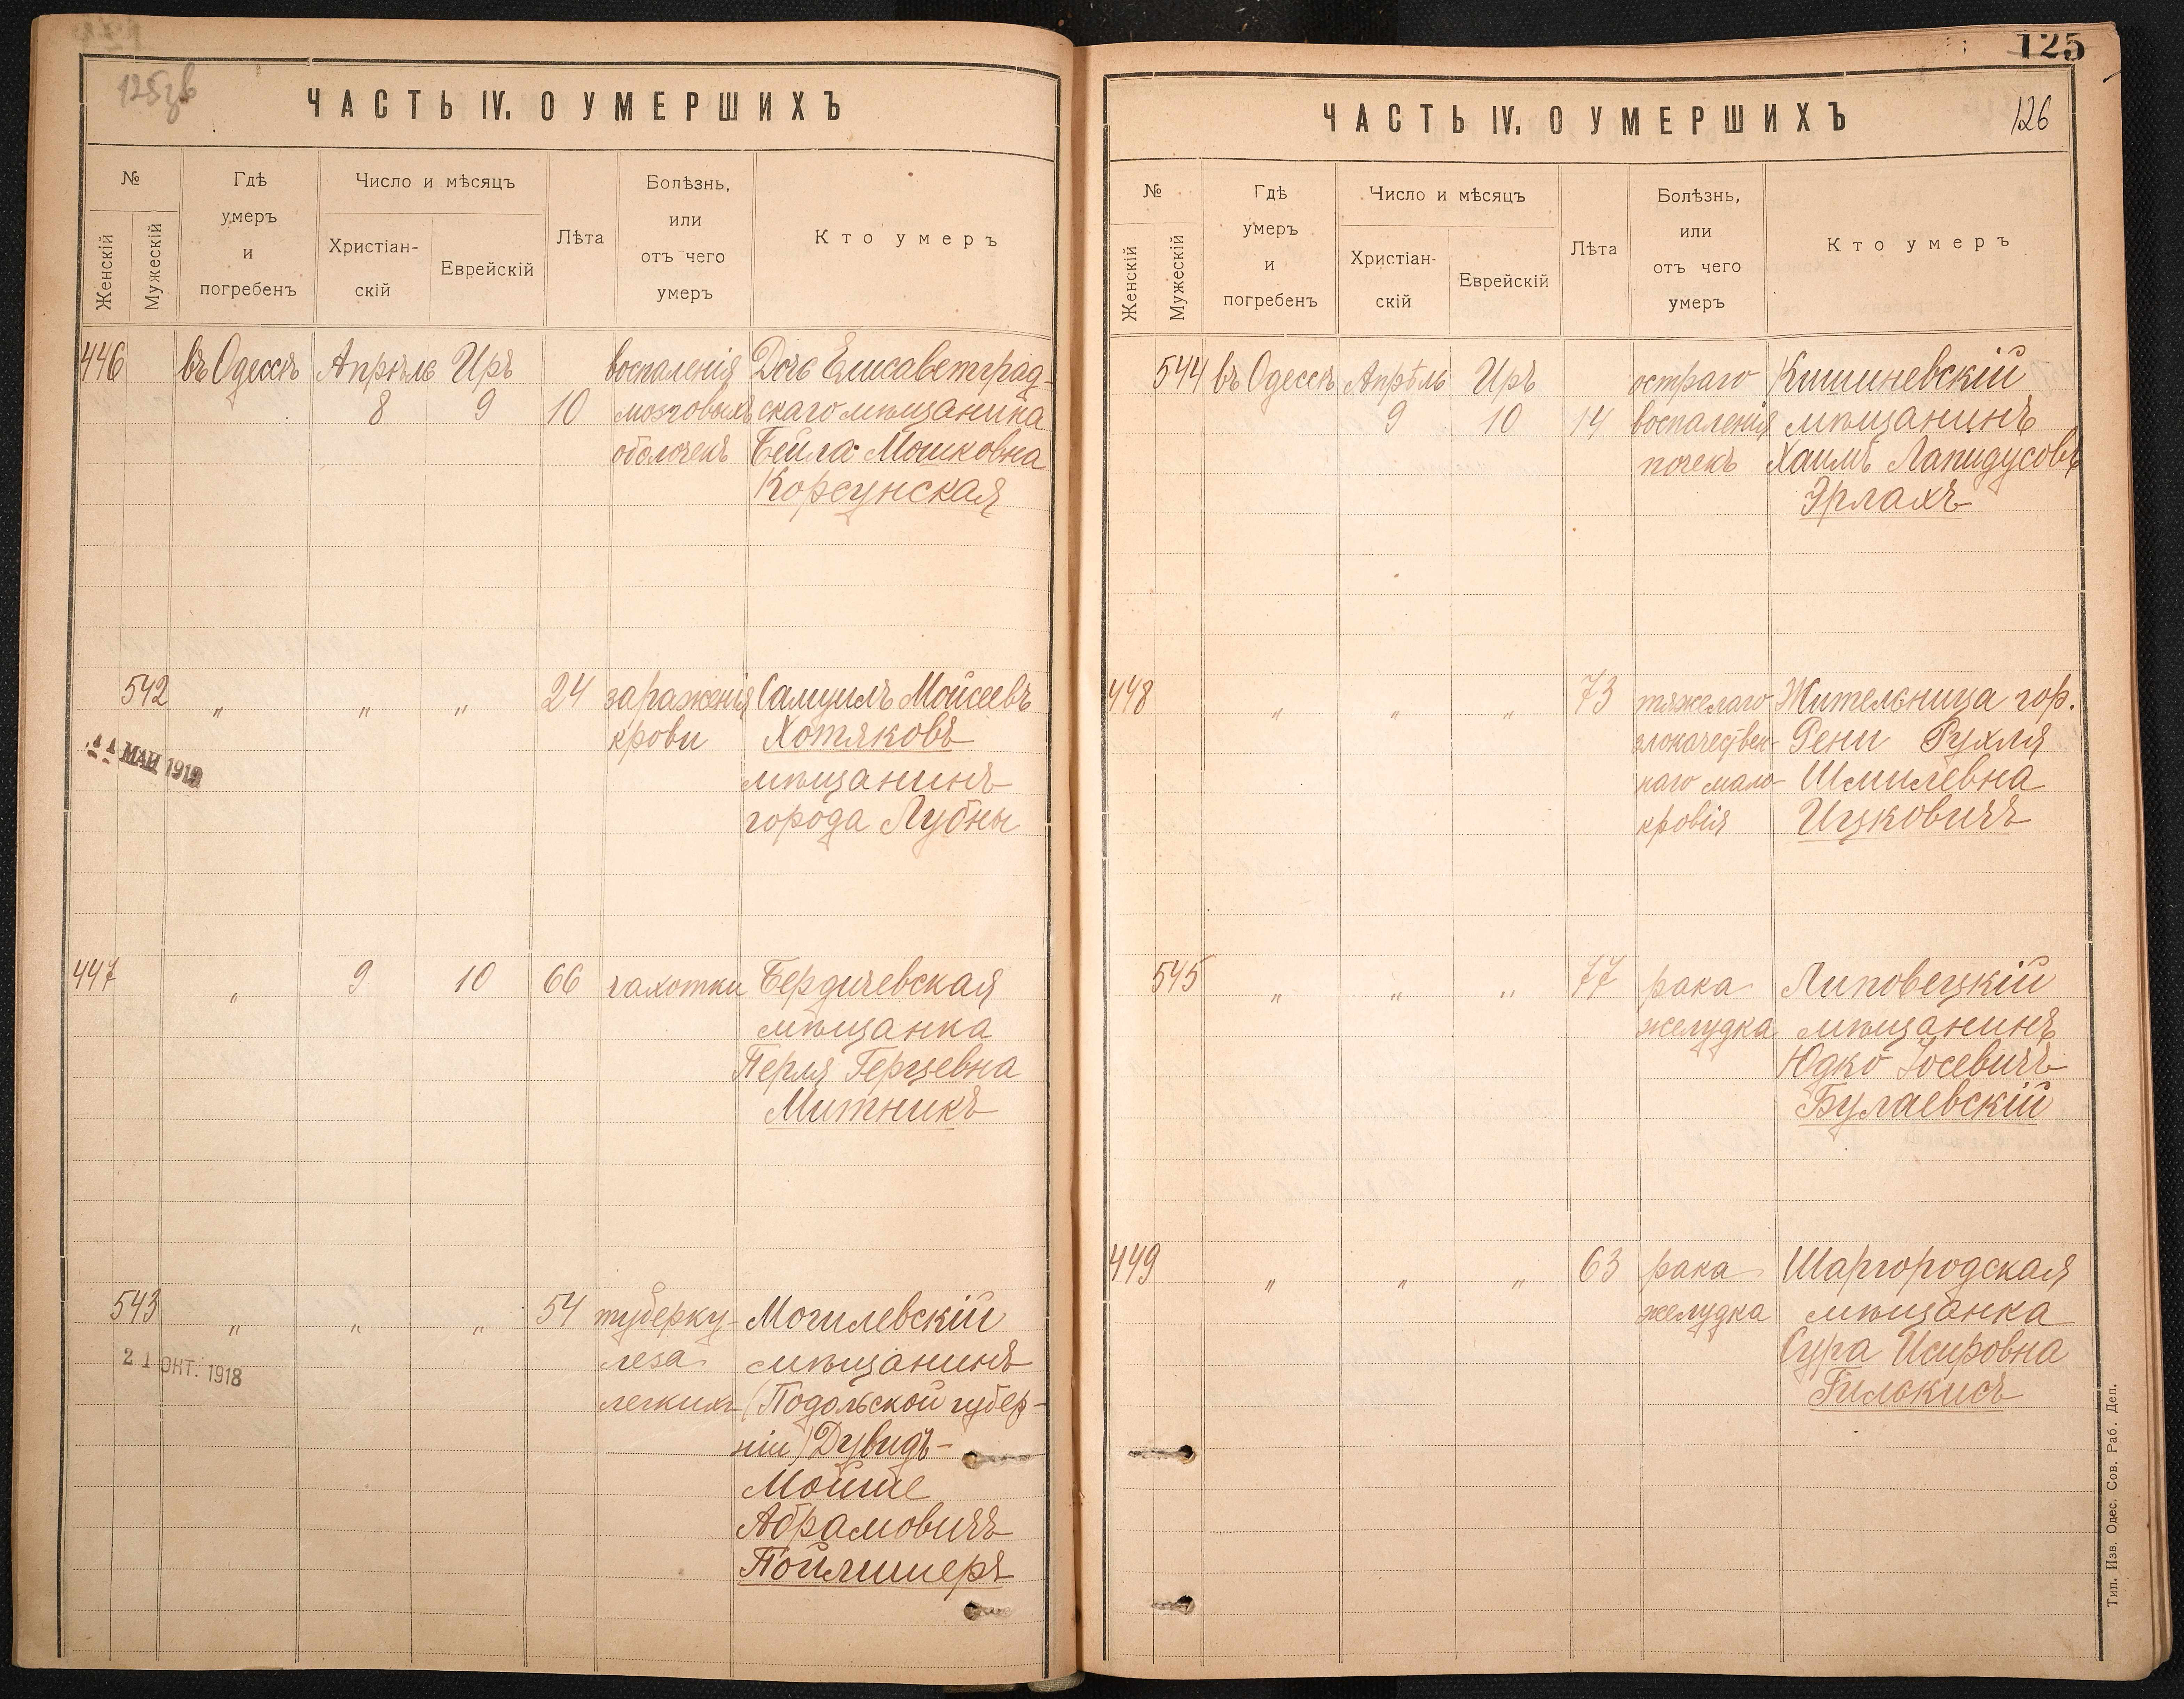 125зв
ЧАСТЬ IV. О УМЕРШИХЪ
№
Женскій
Мужескій
Гдѣ
умеръ
и
погребенъ
Число и мѣсяцъ
Христіан-
скій
Еврейскій
Лѣта
Болѣзнь,
или
отъ чего
умеръ
Кто умеръ
446 въ Одессѣ Апрѣль Иръ воспаленія Дочь Елисаветград-
8 9 10 мозговыхъ скаго мѣщанина
оболочекъ Бейла Мошковна
Корсунская
542 „ „ „ 24 зараженія Самуилъ Мойсеевъ
крови Хотяковъ
11 МАЙ 1919
мѣщанинъ
города Лубны
447 „ 9 10 66 чахотки Бердичевская
мѣщанка
Перля Герцевна
Митникъ
543 „ „ „ 54 туберку- Могилевскій
леза мѣщанинъ
21 ОКТ. 1918
легкихъ (Подольской губер-
ніи) Дувидъ-
Мойше
Абрамовичъ
Пойлишеръ
125
126
ЧАСТЬ IV. О УМЕРШИХЪ
№
Женскій
Мужескій
Гдѣ
умеръ
и
погребенъ
Число и мѣсяцъ
Христіан-
скій
Еврейскій
Лѣта
Болѣзнь,
или
отъ чего
умеръ
Кто умеръ
544 въ Одессѣ Апрѣль Иръ остраго Кишиневскій
9 10 14 воспаленія мѣщанинъ
почекъ Хаимъ Лапидусовъ
Эрлахъ
448 „ „ „ 73 тяжелаго Жительница гор.
злокачествен- Рени Рухля
наго мало- Шмилевна
кровія Ицковичъ
545 „ „ „ 77 рака Липовецкій
желудка мѣщанинъ
Юдко Іосевичъ
Булаевскій
449 „ „ „ 63 рака Шаргородская
желудка мѣщанка
Сура Исировна
Гилькисъ
Тип. Изв. Одес. Сов. Раб. Деп.